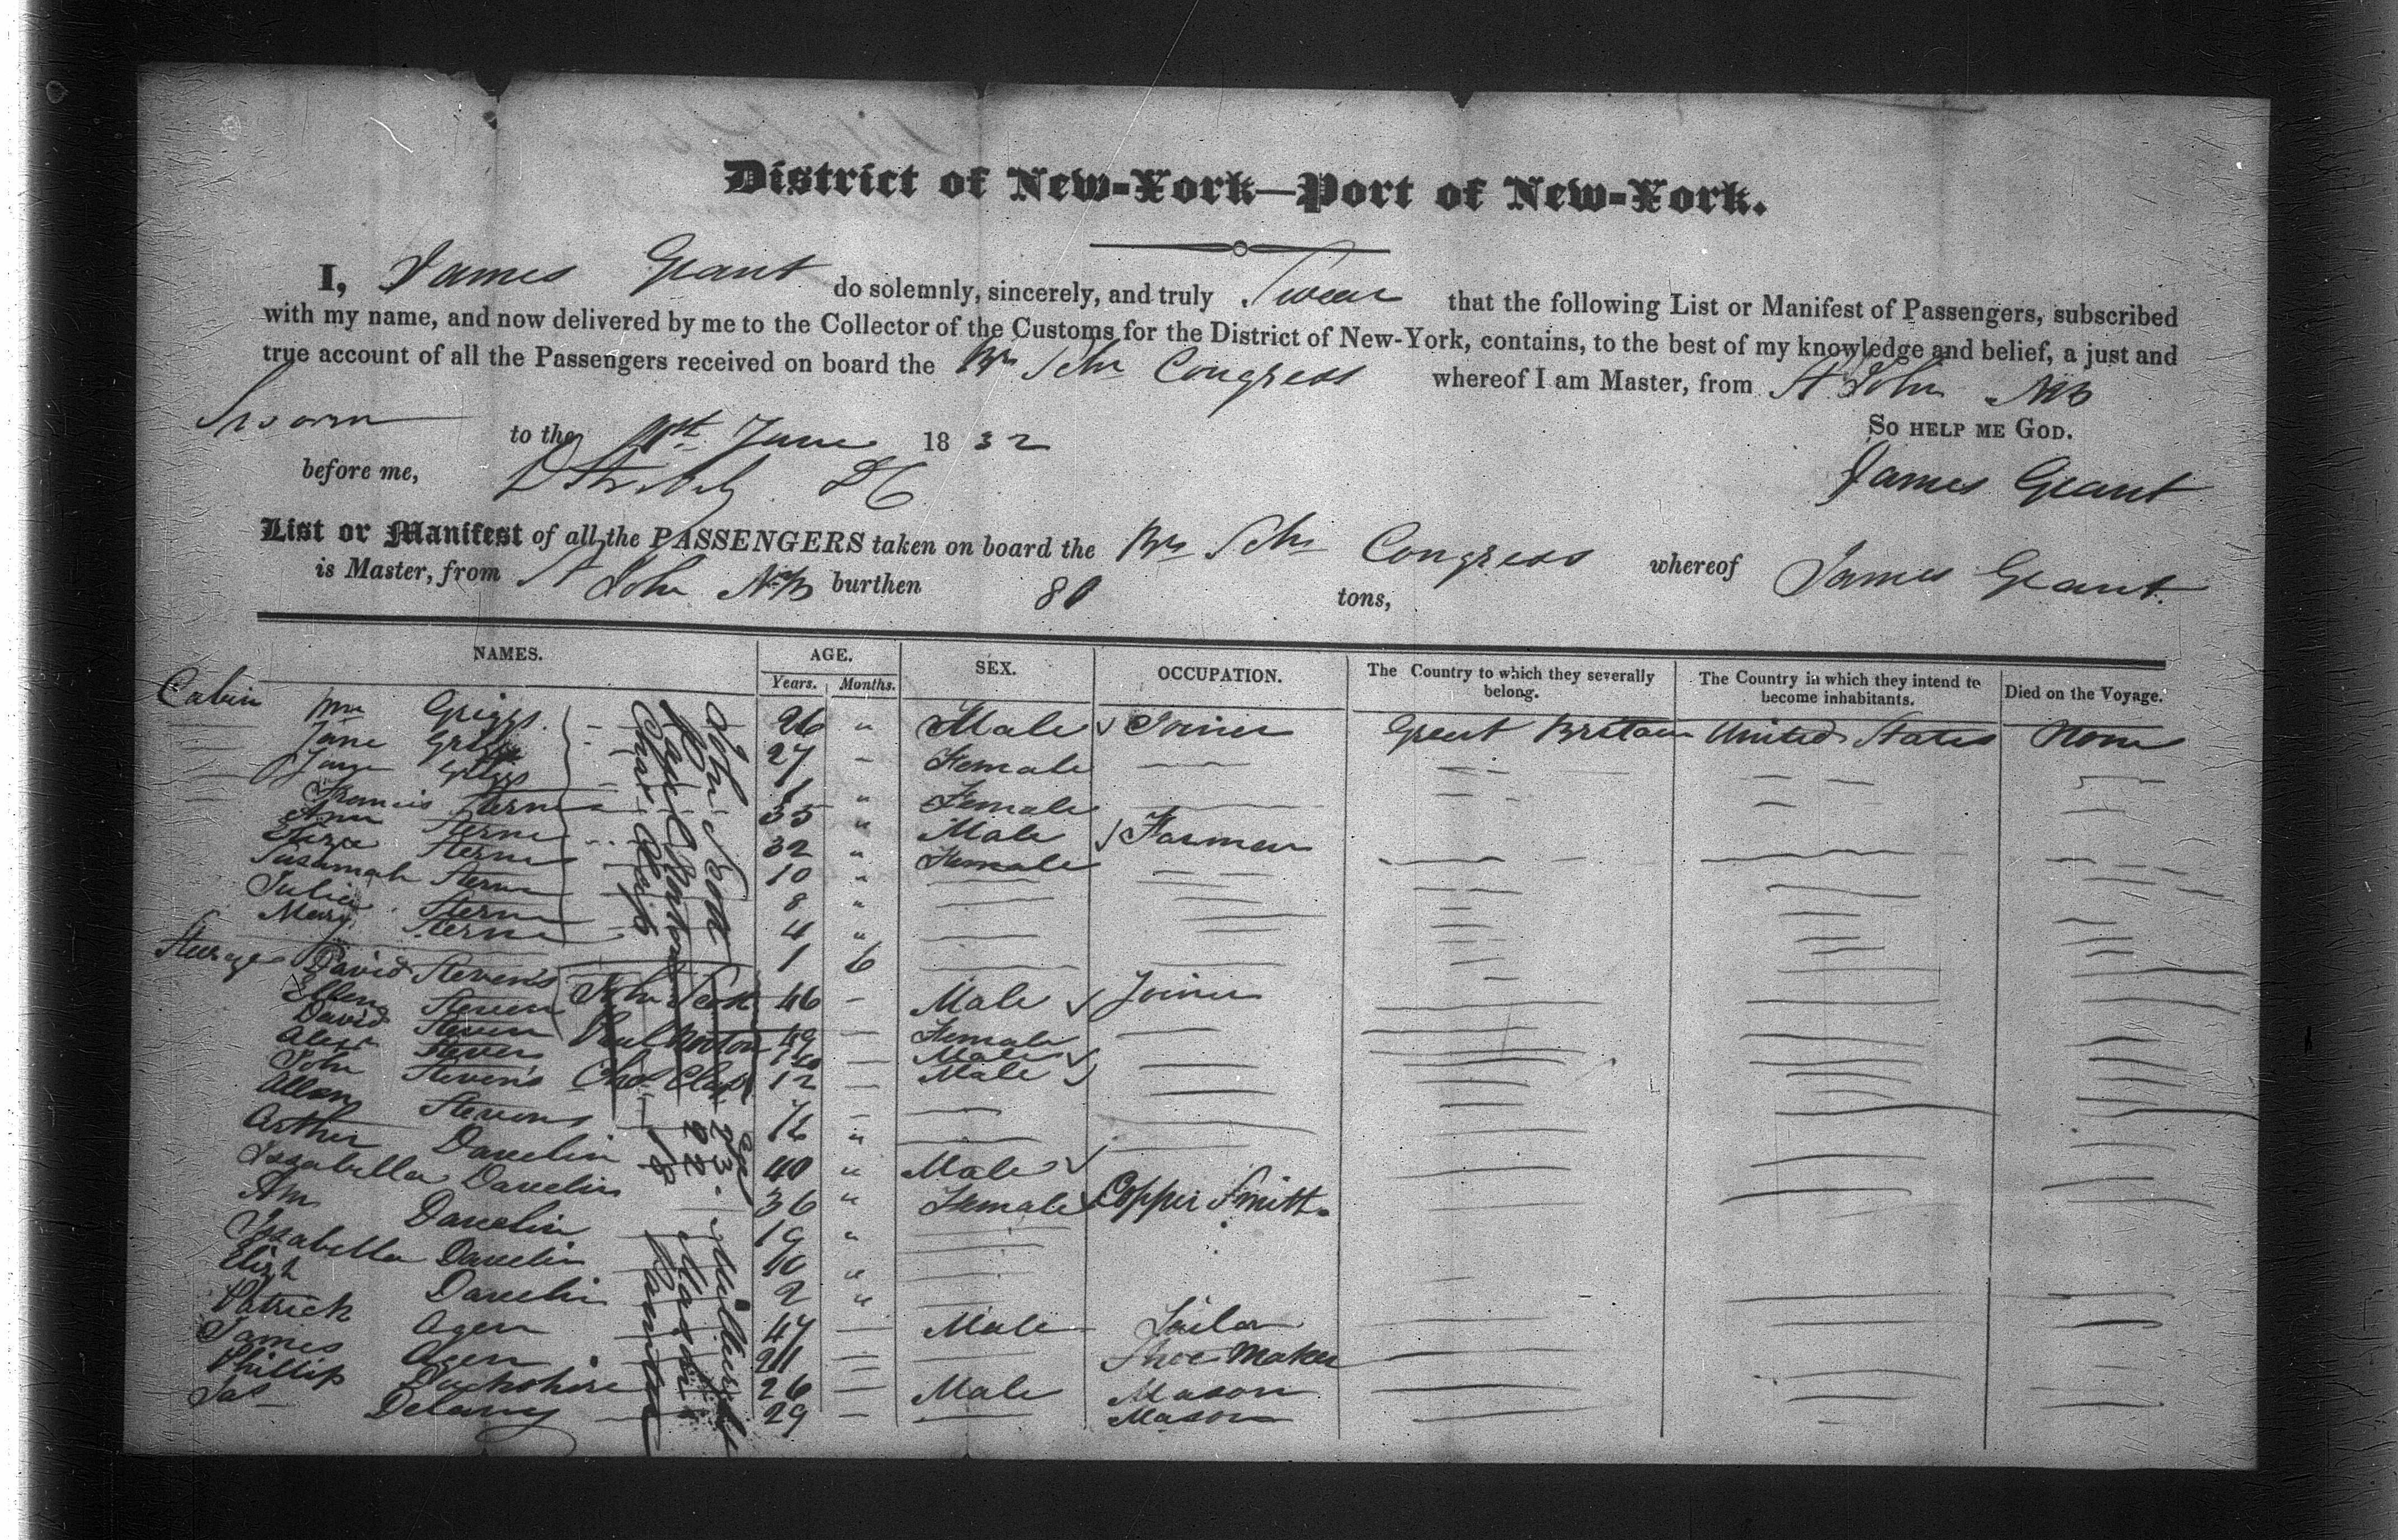 District of New-York—Port of New-York.
I, James Geant do solemnly, sincerely, and truly Swear that the following List or Manifest of Passengers, subscribed
with my name, and now delivered by me to the Collector of the Customs for the District of New-York, contains, to the best of my knowledge and belief, a just and
true account of all the Passengers received on board the Br Schr Congress whereof I am Master, from St John NB
Sworn to the June 1832 So help me God.
before me, DC James Geant
List or Manifest of all the PASSENGERS taken on board the Br Schr Congress whereof James Geant
is Master, from St John NB burthen 80 tons,
NAMES. AGE. SEX. OCCUPATION. The Country to which they severally belong. The Country in which they intend to become inhabitants. Died on the Voyage.
Years. Months.
Cabin Wm Griggs 26 " Male Joiner Great Britain United States None
Jane Griggs 27 Female
Jane Griggs 1 " Female
Francis Sterne 35 " Male Farmer
Ann Sterne 32 " Female
Eliza Sterne 10 "
Susannah Sterne 8 "
Julia Sterne 4 "
Mary Sterne 1 6
Steerage David Stevens 46 - Male Joiner
Ellen Steven 49 Female
David Steven Male
Alexr Steven 12 Male
John Stevens
Allen Stevens 16 "
Arthur Davelin 40 " Male
Issabella Davelin 36 " Female Copper Smith
Ann Davelin 19 "
Issabella Davelin 10 "
Eliza Davelin 2 "
Patrick Agen 47 Male Tailor
James Agen 21 Shoe Maker
Phillip 26 Male Mason
Jas Delany 29 Mason
John Scott
Paul Morton
Chas Clap
John Scott
Age
23
22
18
Mason